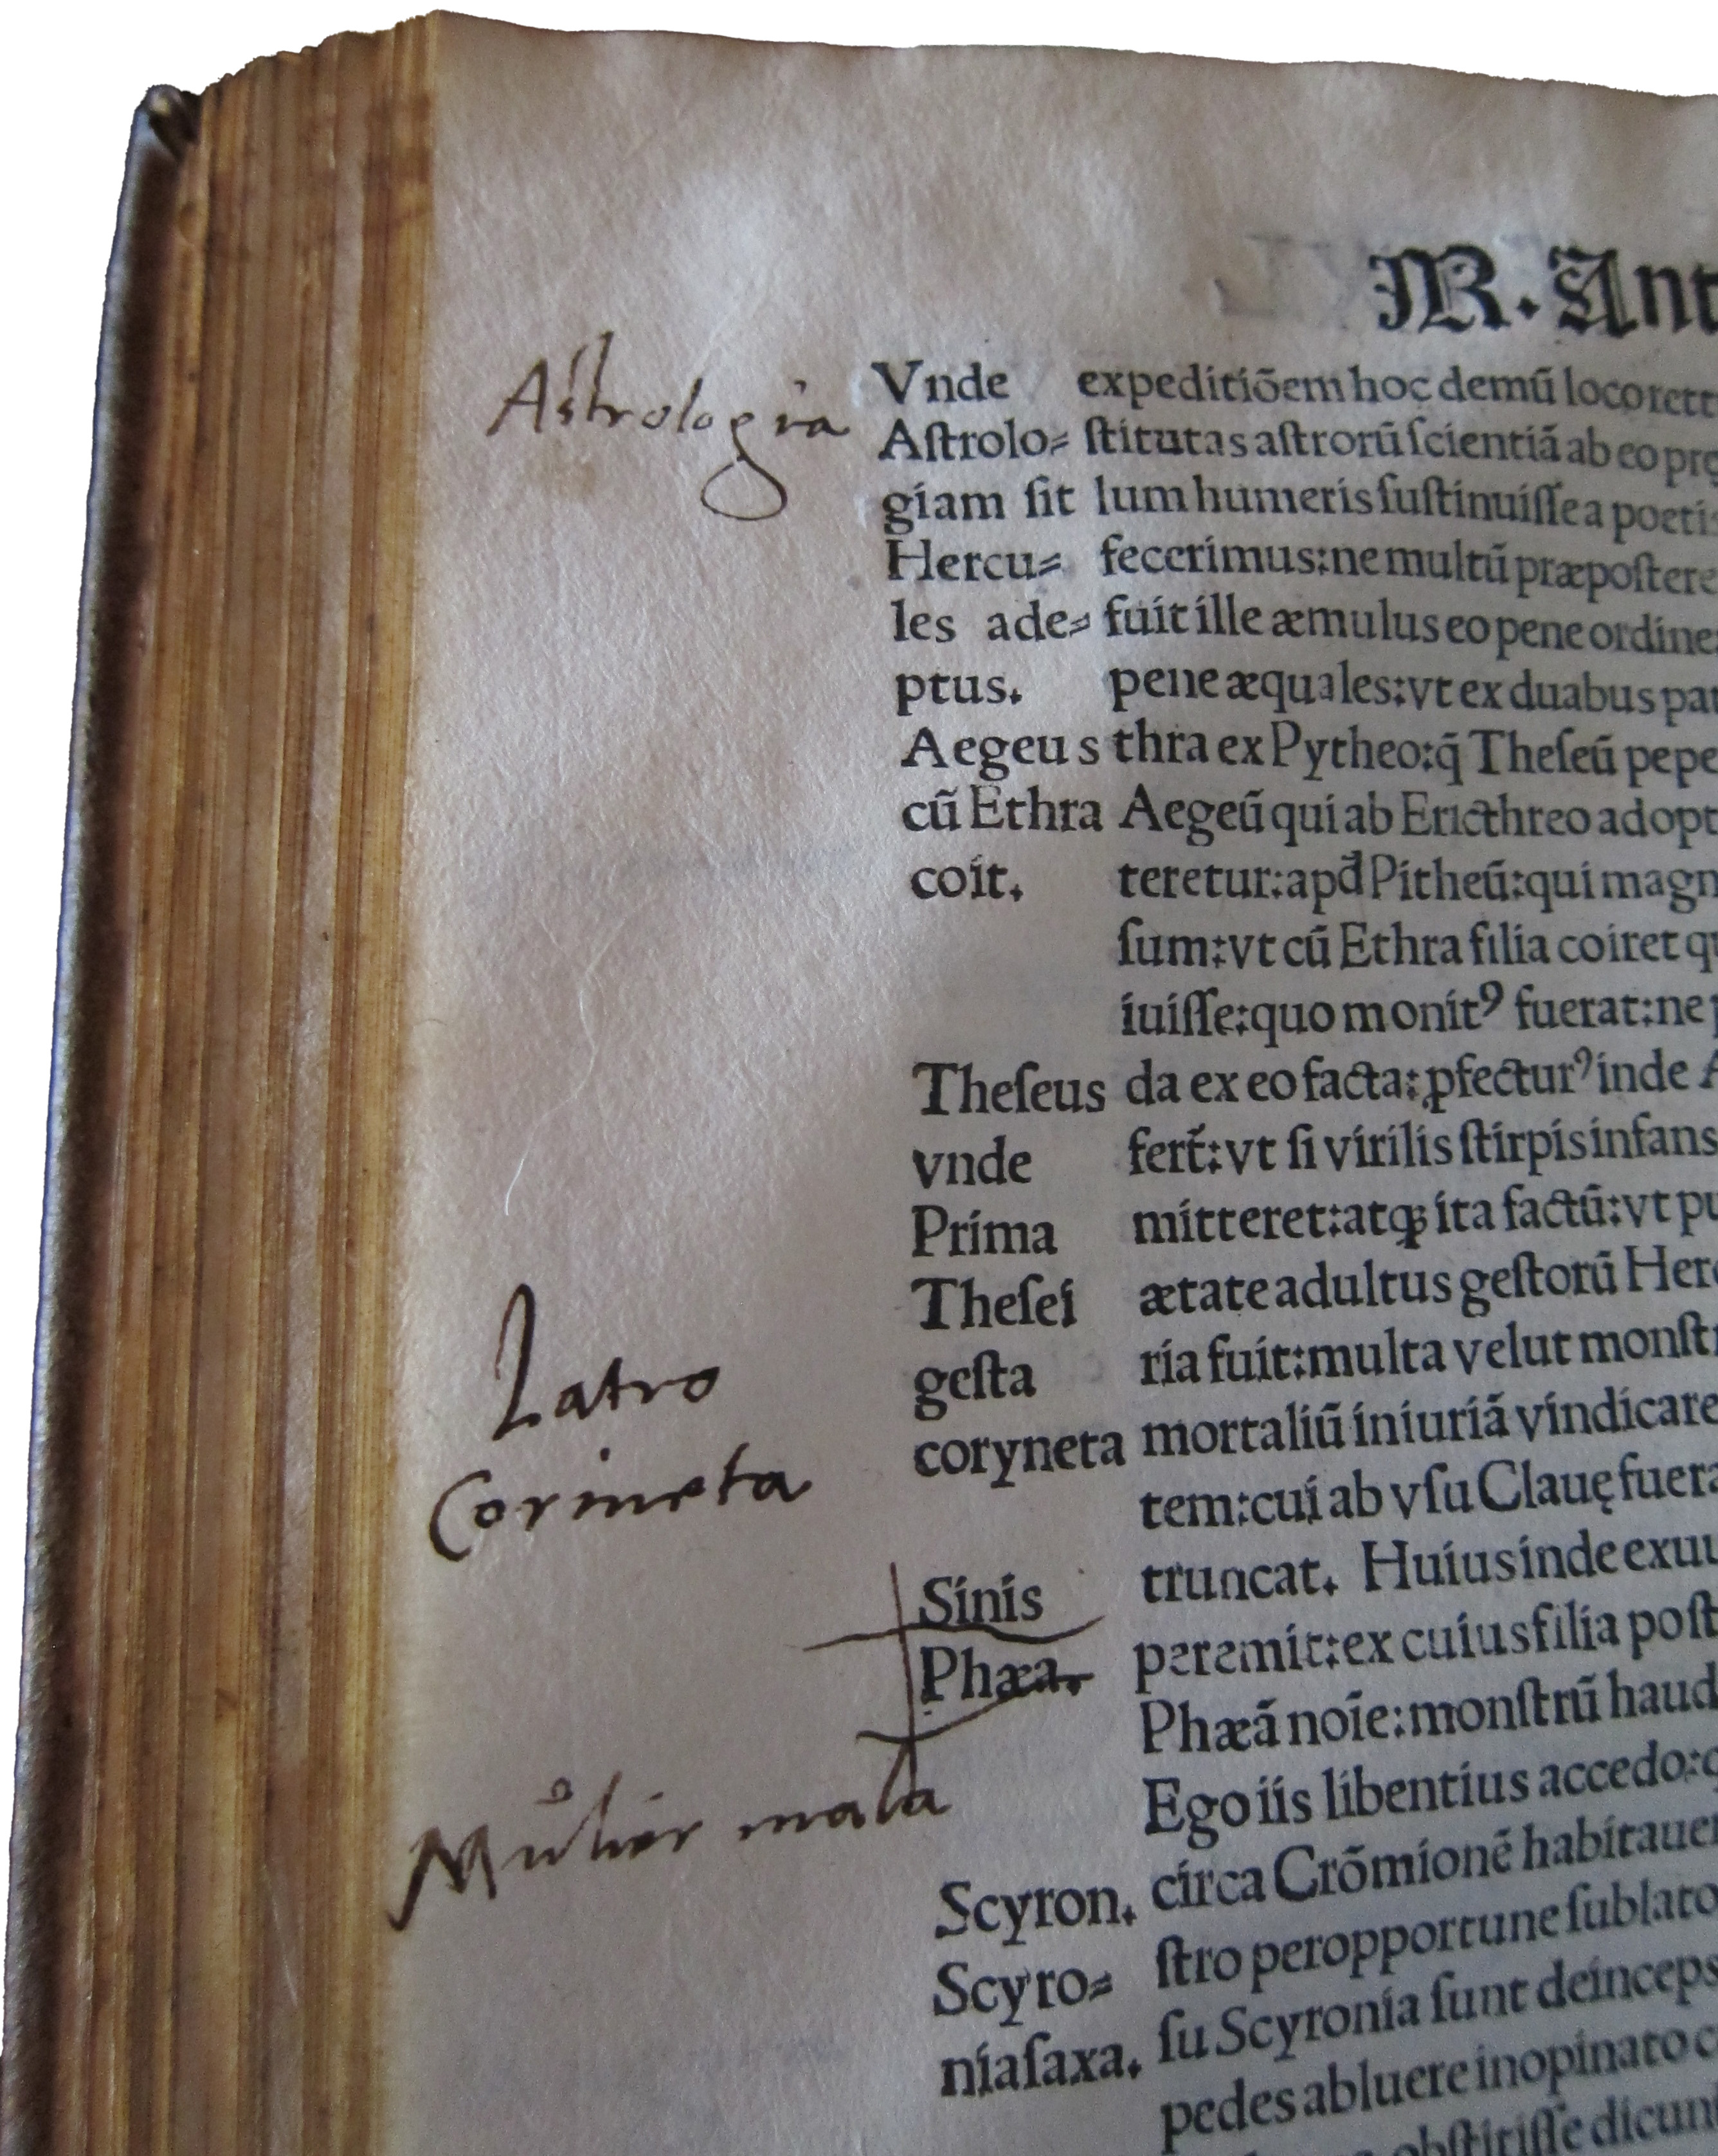 M. Ant
Astrologia
Vnde expeditiõem hoc demũ loco rett
Aſtrolo⸗ ſtitutas aſtrorũ ſcientiã ab eo prę
giam ſit lum humeris ſuſtinuiſſe a poeti
Hercu⸗ fecerimus:ne multũ præpoſtere
les ade⸗ fuit ille æmulus eo pene ordine:
ptus. pene æquales:vt ex duabus pat
Aegeus thra ex Pytheo:q̃ Theſeũ pepe
cũ Ethra Aegeũ qui ab Ericthreo adopt
coit. teretur:apđ Pitheũ:qui magn
ſum:vt cũ Ethra filia coiret qu
iuiſſe:quo monitꝰ fuerat:ne
Theſeus da ex eo facta:ꝓfecturꝰ inde A
vnde fert̃:vt ſi virilis ſtirpis infans
Prima mitteret:atqꝫ ita factũ:vt pu
Theſei ætate adultus geſtorũ Herc
geſta ria fuit:multa velut monſtr
Latro
coryneta mortaliũ iniuriã vindicare
Corineta
tem:cui ab vſu Clauę fuera
Sinis truncat. Huius inde exuu
Phæa. peremit:ex cuius filia poſt
Phæã noĩe:monſtrũ haud
Mulier mala
Ego iis libentius accedo:q
Scyron. circa Crõmionẽ habitauer
Scyro⸗ ſtro peropportune ſublato
niaſaxa. ſu Scyronia ſunt deinceps
pedes abluere inopinato c
obſtitiſſe dicun